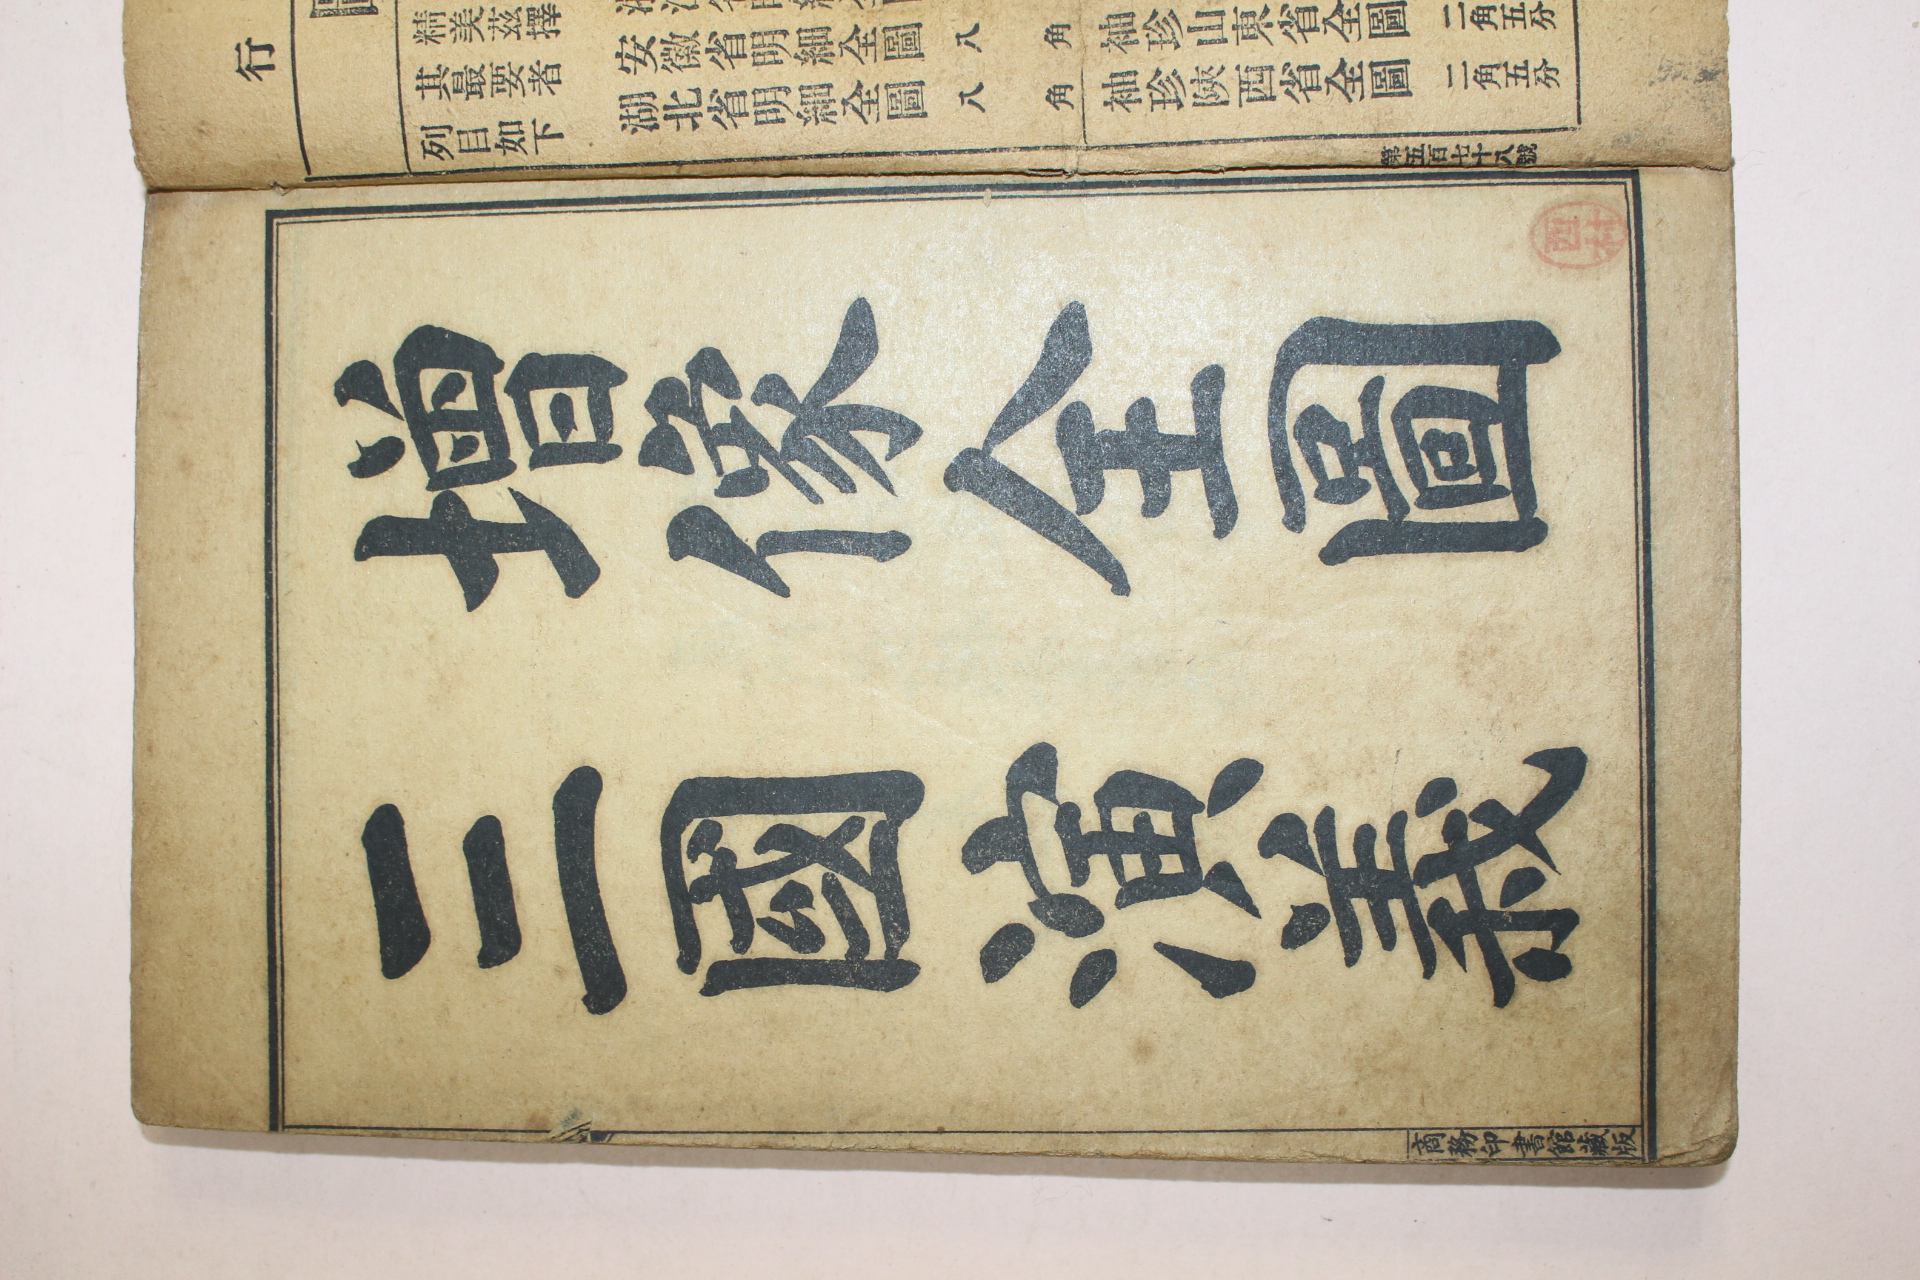 行
精美茲擇
其最要者
列目如下
安徽省明細全圖 八角
湖北省明細全圖 八角
袖珍山東省全圖 二角五分
袖珍陝西省全圖 二角五分
第五百七十八號
增像全圖
三國演義
商務印書館藏版
西村